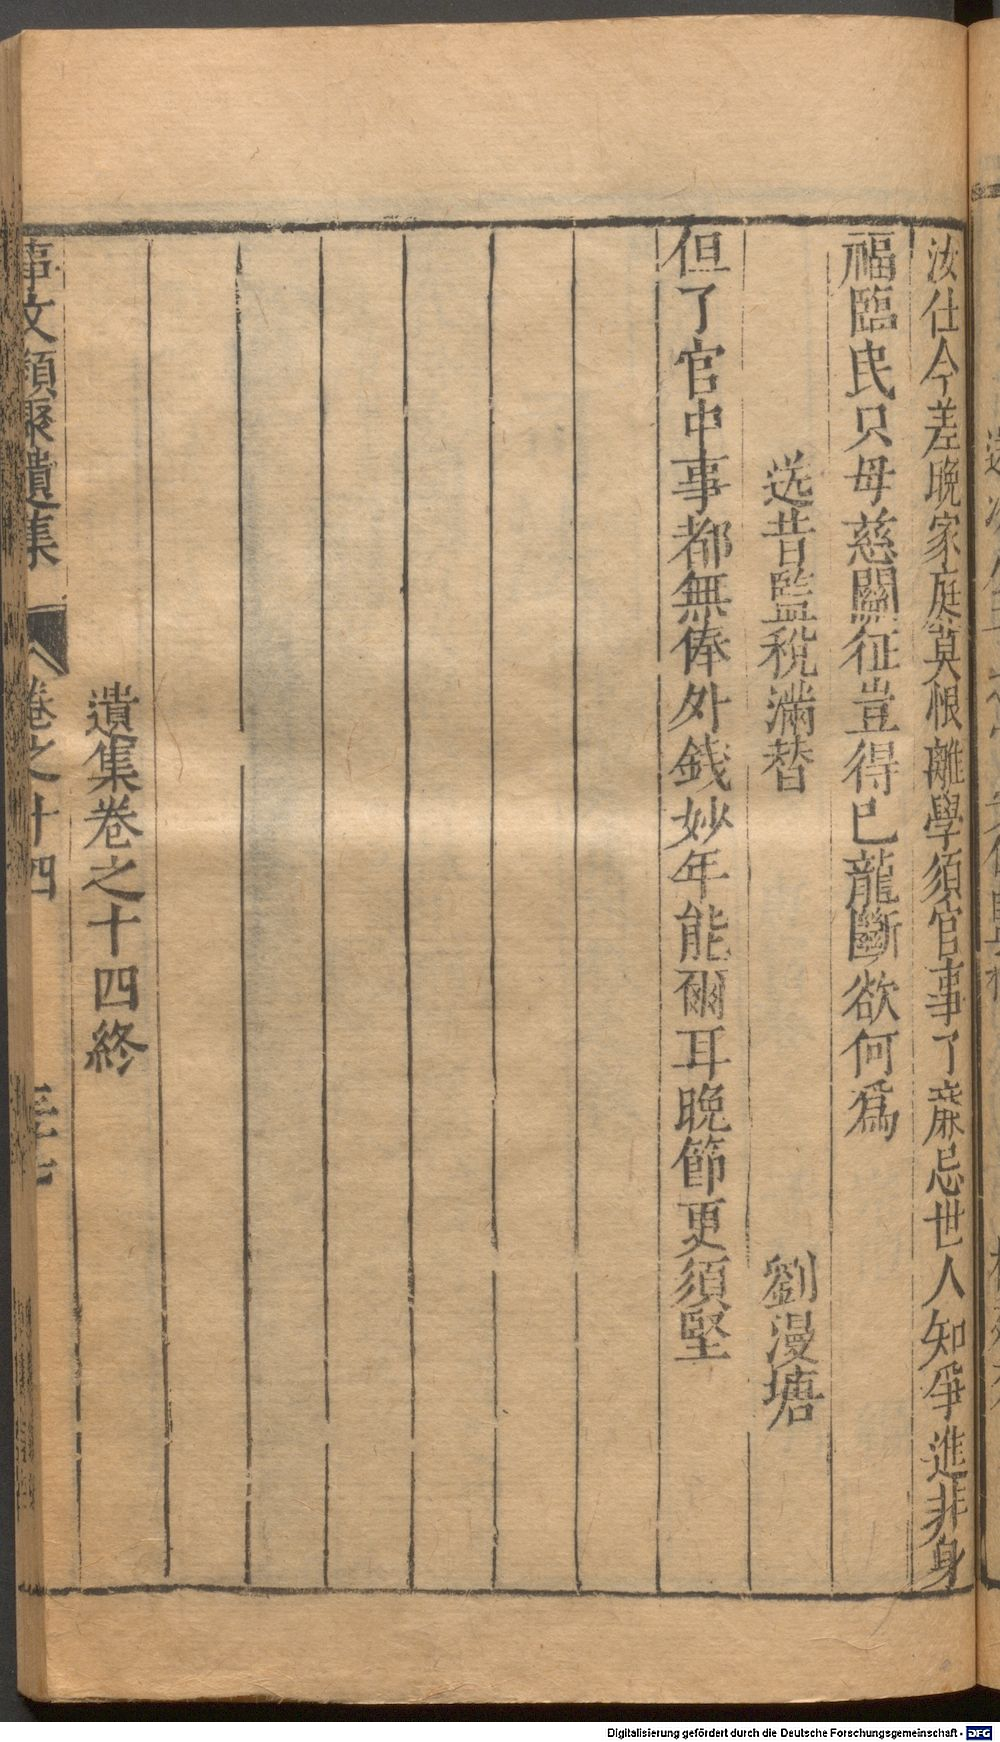 汝仕今差晚家庭莫恨離學須官事了廉忌世人知爭進非身
福臨民只母慈關征豈得已龍斷欲何爲
送昔監稅滿替 劉漫塘
但了官中事都無俸外錢妙年能爾耳晚節更須堅
遺集卷之十四終
事文類聚遺集 卷之十四
Digitalisierung gefördert durch die Deutsche Forschungsgemeinschaft - DFG